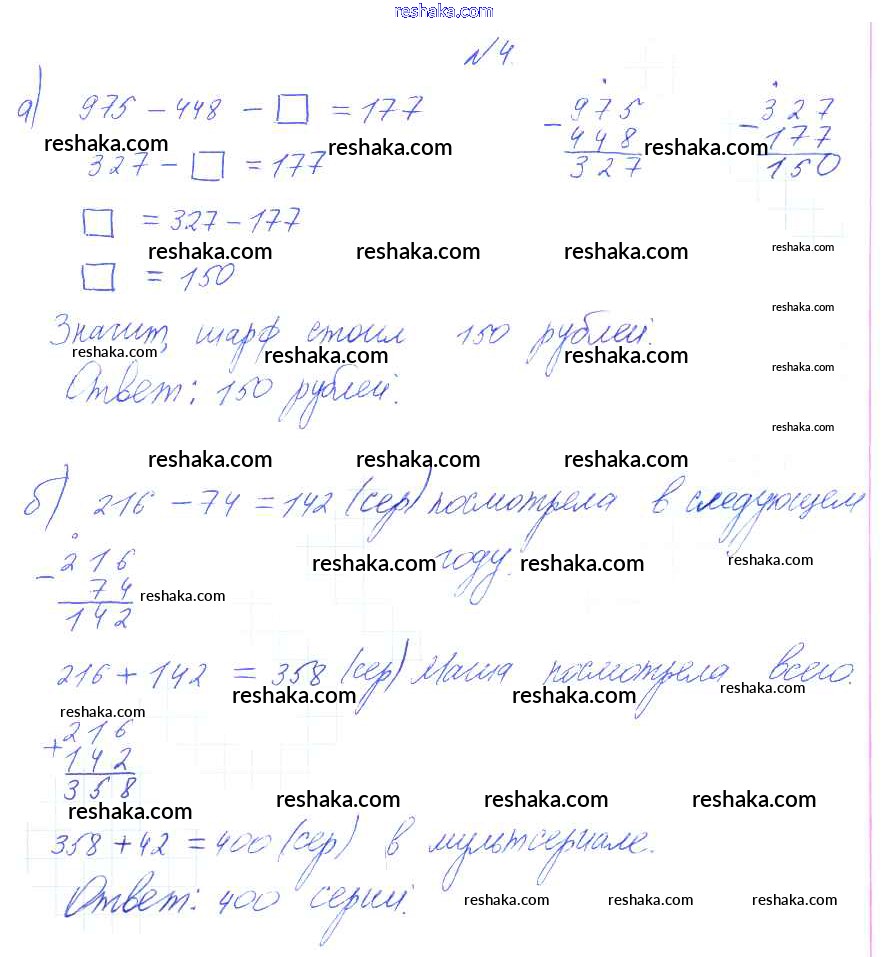 reshaka.com
№4.
а) 975 - 448 - □ = 177
975
- 448
327
327
- 177
150
reshaka.com reshaka.com reshaka.com
327 - □ = 177
□ = 327 - 177
reshaka.com reshaka.com reshaka.com reshaka.com
□ = 150
reshaka.com
Значит, шарф стоил 150 рублей.
reshaka.com reshaka.com reshaka.com reshaka.com
Ответ: 150 рублей.
reshaka.com
reshaka.com reshaka.com reshaka.com
б) 216 - 74 = 142 (сер) посмотрела в следующем
году.
reshaka.com reshaka.com reshaka.com
216
- 74
142
reshaka.com
216 + 142 = 358 (сер) Маша посмотрела всего.
reshaka.com reshaka.com reshaka.com
reshaka.com
216
+ 142
358
reshaka.com reshaka.com reshaka.com reshaka.com
358 + 42 = 400 (сер) в мультсериале.
Ответ: 400 серий.
reshaka.com reshaka.com reshaka.com